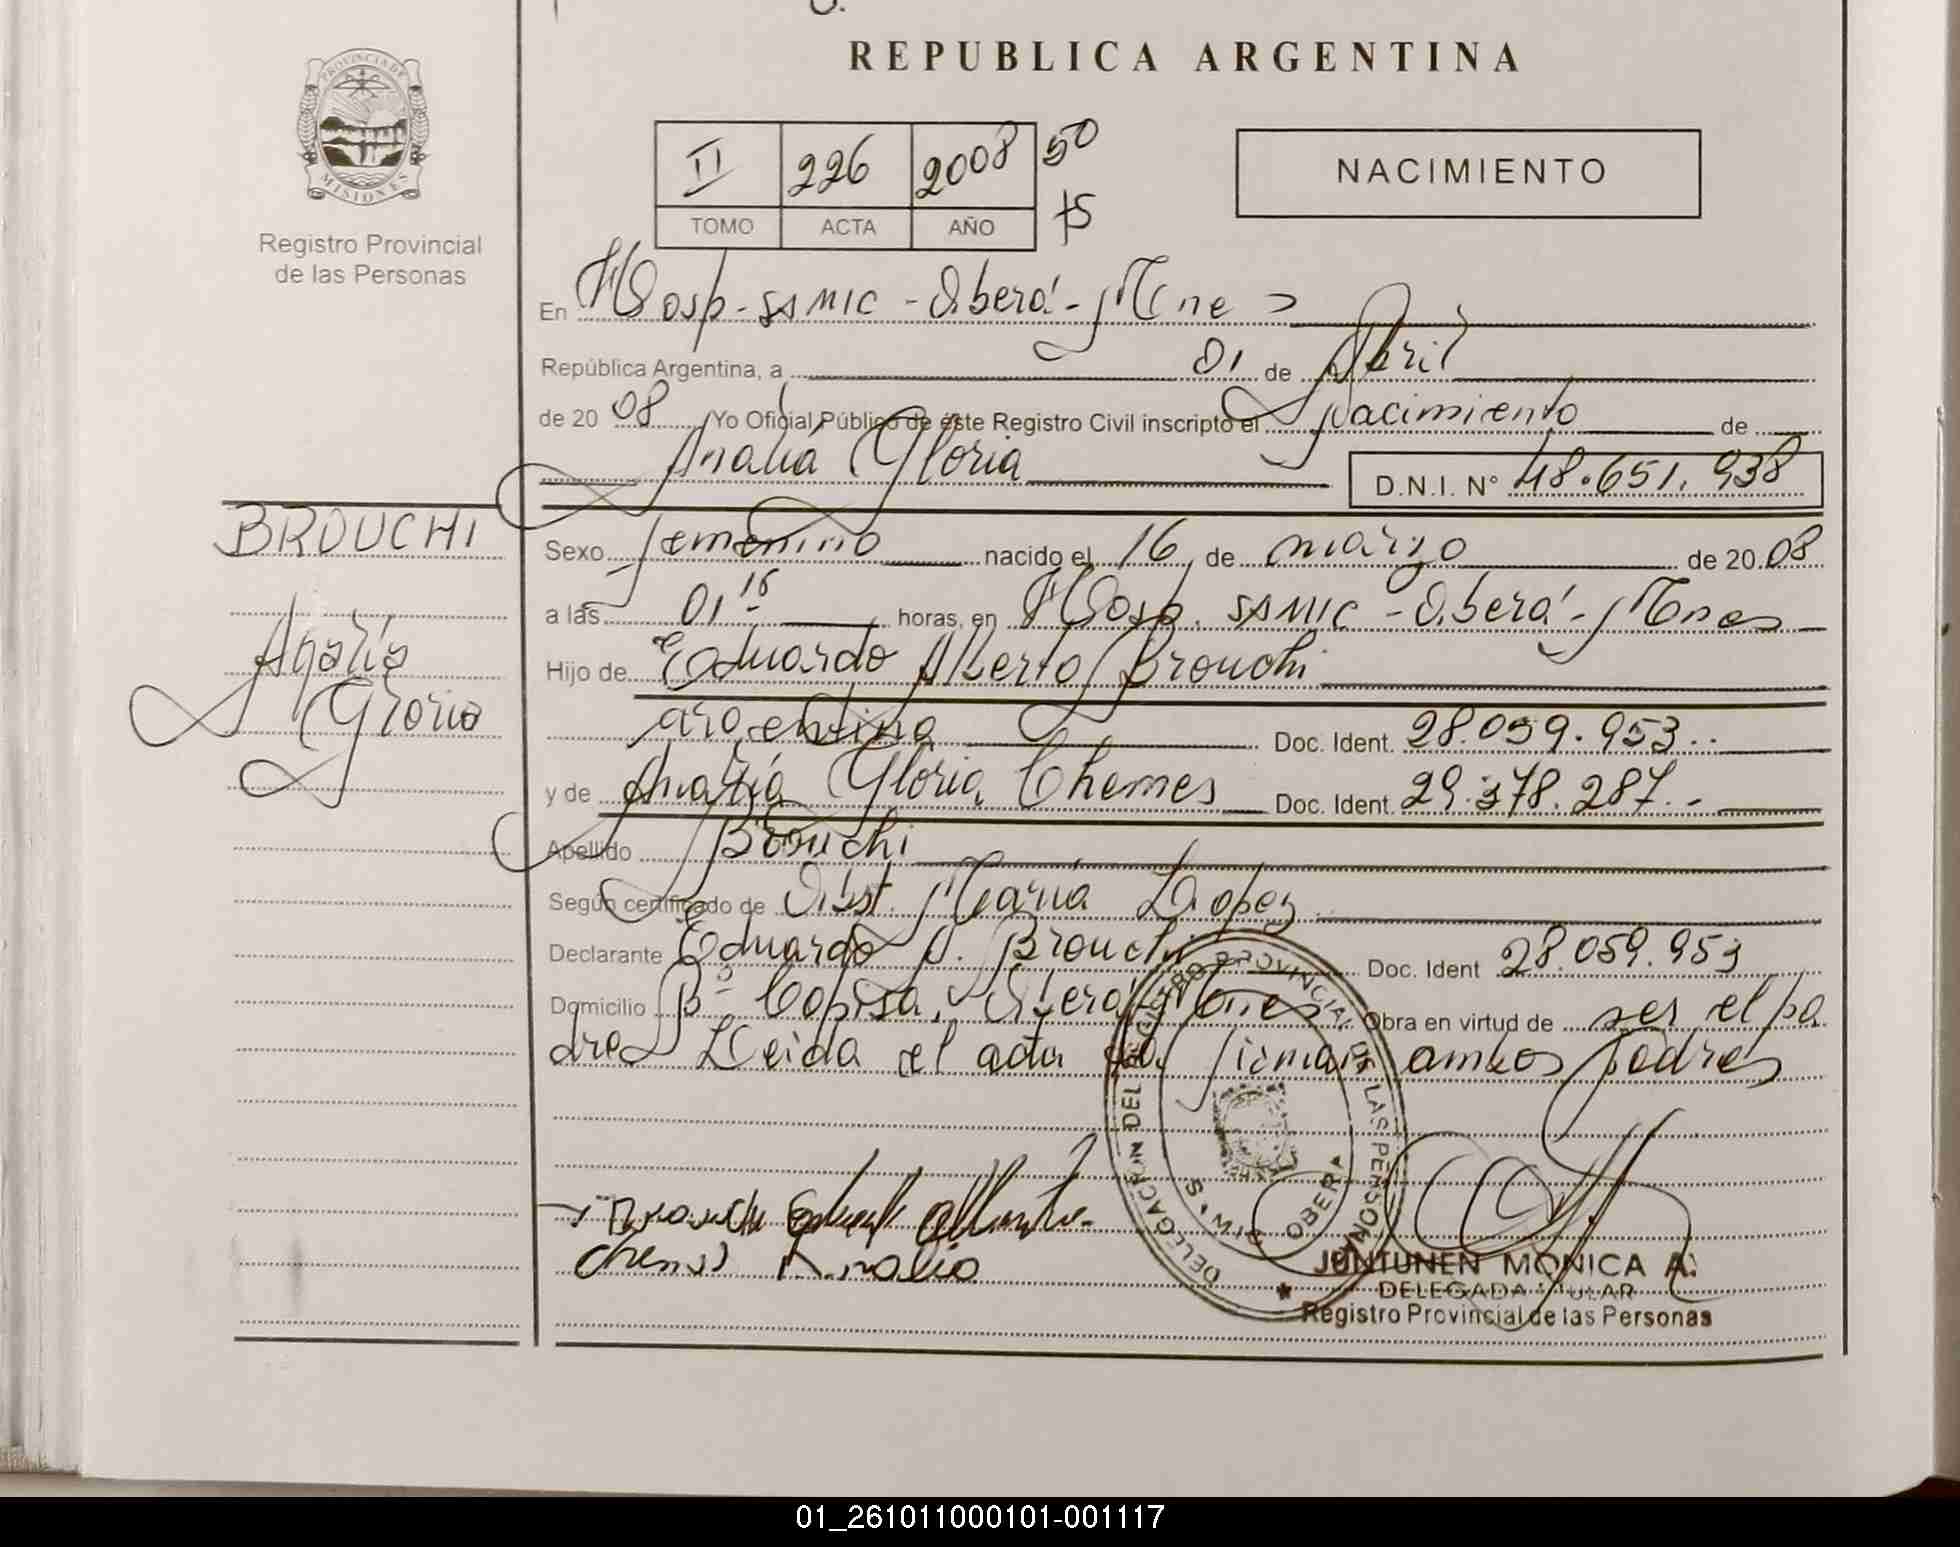 REPUBLICA ARGENTINA
PROVINCIA DE
MISIONES
Registro Provincial
de las Personas
II 226 2008 50
TOMO ACTA AÑO 75
NACIMIENTO
En Hosp. SAMIC - Oberá - Mnes
República Argentina, a 01 de Abril
de 20 08 Yo Oficial Público de éste Registro Civil inscripto el Nacimiento de
Analía Gloria D.N.I. N° 48.651.938
BROUCHI
Analía
Gloria
Sexo femenino nacido el 16 de marzo de 20 08
a las 01 15 horas, en Hosp. SAMIC - Oberá - Mnes
Hijo de Eduardo Alberto Brouchi
argentina Doc. Ident. 28.059.953.
y de Analía Gloria Chemes Doc. Ident. 29.378.287.-
Apellido Brouchi
Según certificado de Obst. María Lopez
Declarante Eduardo A. Brouchi Doc. Ident 28.059.953
Domicilio B° Copisa, Oberá, Mnes Obra en virtud de ser el pa
dre Leida el acta la firman ambos padres
Brouchi Eduardo Alberto
Chemes Analia
DELEGACION DEL REGISTRO PROVINCIAL DE LAS PERSONAS
OBERA
JUNTUNEN MONICA A.
DELEGADA TITULAR
Registro Provincial de las Personas
01_261011000101-001117